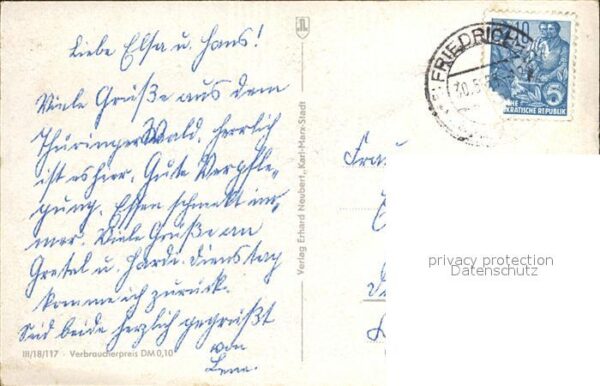 Liebe Elsa u. Hans!
Viele Grüße aus dem
Thüringer Wald, herrlich
ist es hier. Gute Verpfle-
gung. Essen schmekt im-
mer. Viele Grüße an
Gretel u. Hardi. Dienstag
komme ich zurück.
Seid beide herzlich gegrüßt
von
Lena.
III/18/117 · Verbraucherpreis DM 0,10
Verlag Erhard Neubert, Karl-Marx-Stadt
FRIEDRICH
30.5.
10
5
KRATISCHE REPUBLIK
Frau
privacy protection
Datenschutz